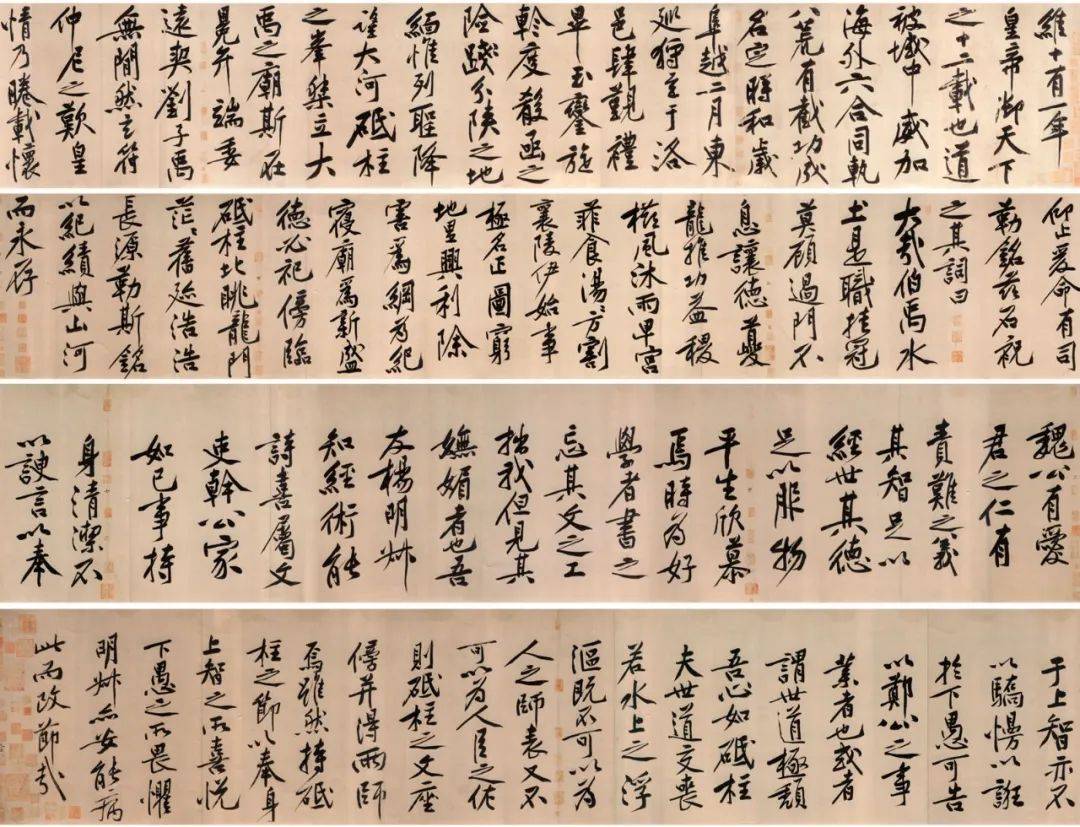 維十有一年
皇帝御天下
之十二載也道
被域中威加
海外六合同軌
八荒有截功成
名定時和歲
阜越二月東
巡狩至于洛
邑肆覲禮
畢玉鑾旋
軫度殽函之
險踐分陝之地
緬惟列聖降
望大河砥柱
之峯桀立大
禹之廟斯在
冕弁端委
遠契劉子禹
無閒然玄符
仲尼之歎皇
情乃睠載懷
仰止爰命有司
勒銘茲石祝
之其詞曰
大哉伯禹水
土是職挂冠
莫顧過門不
息讓德夔
龍推功益稷
櫛風沐雨卑宮
菲食湯〻方割
襄陵伊始事
極名正圖窮
地里興利除
害爲綱爲紀
寢廟爲新盛
德必祀傍臨
砥柱北眺龍門
茫〻舊迹浩浩
長源勒斯銘
以紀績與山河
而永存
魏公有愛
君之仁有
責難之義
其智足以
經世其德
足以服物
平生欣慕
焉時爲好
學者書之
忘其文之工
拙我但見其
嫵媚者也吾
友楊明叔
知經術能
詩喜屬文
吏幹公家
如己事持
身清潔不
以諛言以奉
于上智亦不
以驕慢以誑
於下愚可告
以鄭公之事
業者也或者
謂世道極頹
吾心如砥柱
夫世道交喪
若水上之浮
漚既不可以爲
人之師表又不
可以爲人臣之佐
則砥柱之文座
傍并得兩師
焉雖然持砥
柱之節以奉身
上智之所喜悅
下愚之所畏懼
明叔亦安能病
此而改節哉